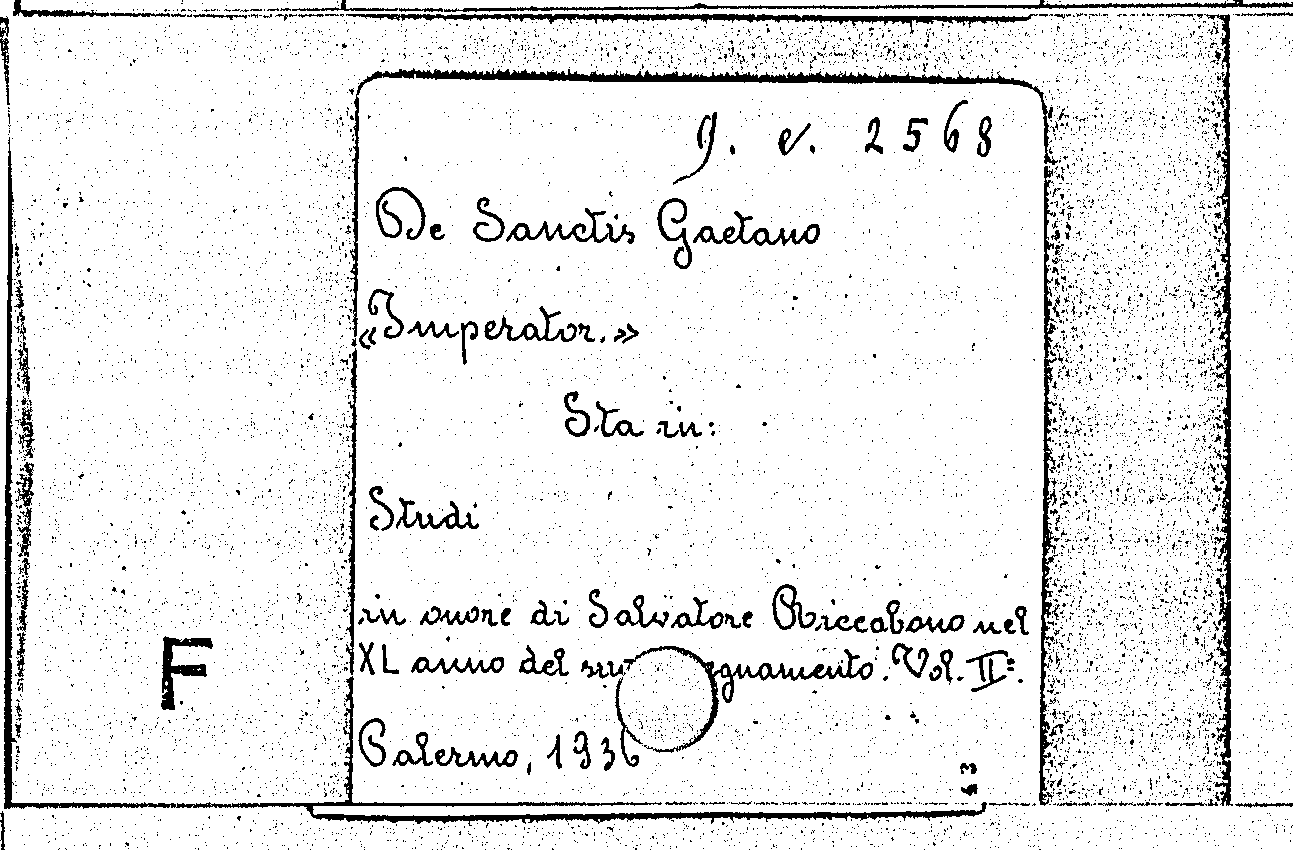 g. v. 2568
De Sanctis Gaetano
«Imperator.»
Sta in:
Studi
in onore di Salvatore Riccobono nel
XL anno del suo gnamento. Vol. II°.
Palermo, 1936
F
63